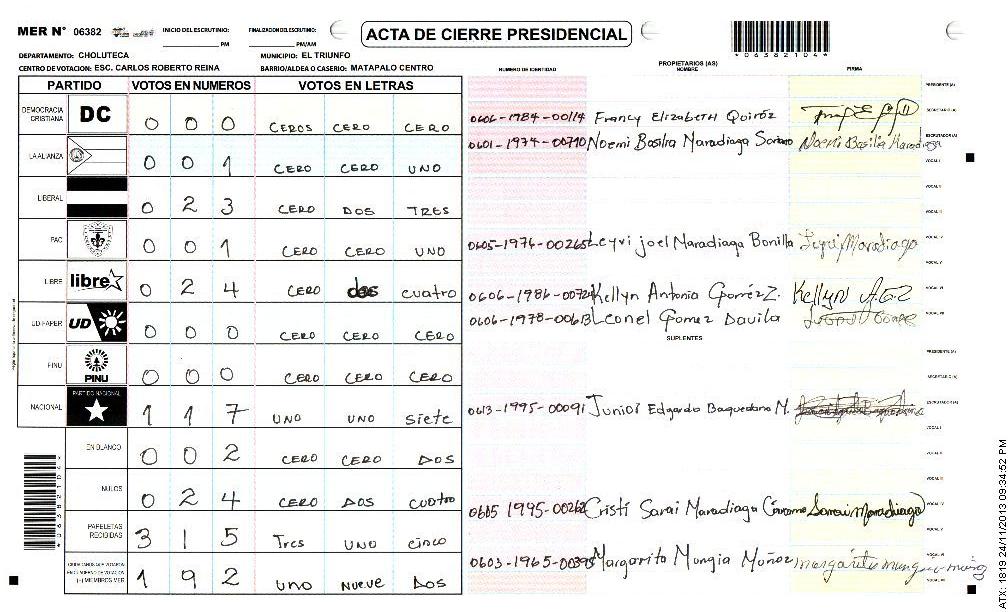 MER N° 06382 INICIO DEL ESCRUTINIO: PM FINALIZACION DEL ESCRUTINIO: PM/AM ACTA DE CIERRE PRESIDENCIAL 06382104
DEPARTAMENTO: CHOLUTECA MUNICIPIO: EL TRIUNFO
CENTRO DE VOTACION: ESC. CARLOS ROBERTO REINA BARRIO/ALDEA O CASERIO: MATAPALO CENTRO
PARTIDO VOTOS EN NUMEROS VOTOS EN LETRAS
DEMOCRACIA CRISTIANA DC 0 0 0 CEROS CERO CERO
LA ALIANZA 0 0 1 CERO CERO UNO
LIBERAL 0 2 3 CERO DOS TRES
PAC 0 0 1 CERO CERO UNO
LIBRE libre 0 2 4 CERO dos cuatro
UD-FAPER UD 0 0 0 CERO CERO CERO
PINU PINU 0 0 0 CERO CERO CERO
NACIONAL PARTIDO NACIONAL 1 1 7 UNO UNO Siete
EN BLANCO 0 0 2 CERO CERO DOS
NULOS 0 2 4 CERO DOS cuatro
PAPELETAS RECIBIDAS 3 1 5 Tres UNO cinco
CIUDADANOS QUE VOTARON EN CUADERNO DE VOTACION (+) MIEMBROS MER 1 9 2 UNO NUEVE DOS
NUMERO DE IDENTIDAD PROPIETARIOS (AS) NOMBRE FIRMA
PRESIDENTE (A)
0606-1984-00114 Francy Elizabeth Quiróz SECRETARIO (A)
0601-1974-00710 Noemi Basilia Maradiaga Soriano Noemi Basilia Maradiaga ESCRUTADOR (A)
VOCAL I
VOCAL II
VOCAL III
0605-1976-00265 Leyvi joel Maradiaga Bonilla Leyvi Maradiaga VOCAL IV
VOCAL V
0606-1986-00724 Kellyn Antonia Gomez Z. Kellyn A.G.Z VOCAL VI
0606-1978-00613 Leonel Gomez Davila VOCAL VII
SUPLENTES
PRESIDENTE (A)
SECRETARIO (A)
0613-1995-00091 Junior Edgardo Baquedano M. ESCRUTADOR (A)
VOCAL I
VOCAL II
VOCAL III
0605 1995-00262 Cristi Sarai Maradiaga Sarai Maradiaga VOCAL IV
VOCAL V
0603-1965-00395 Margarito Mungia Muñoz VOCAL VI
VOCAL VII
06382104
ATX: 1819 24/11/2013 09:34:52 PM